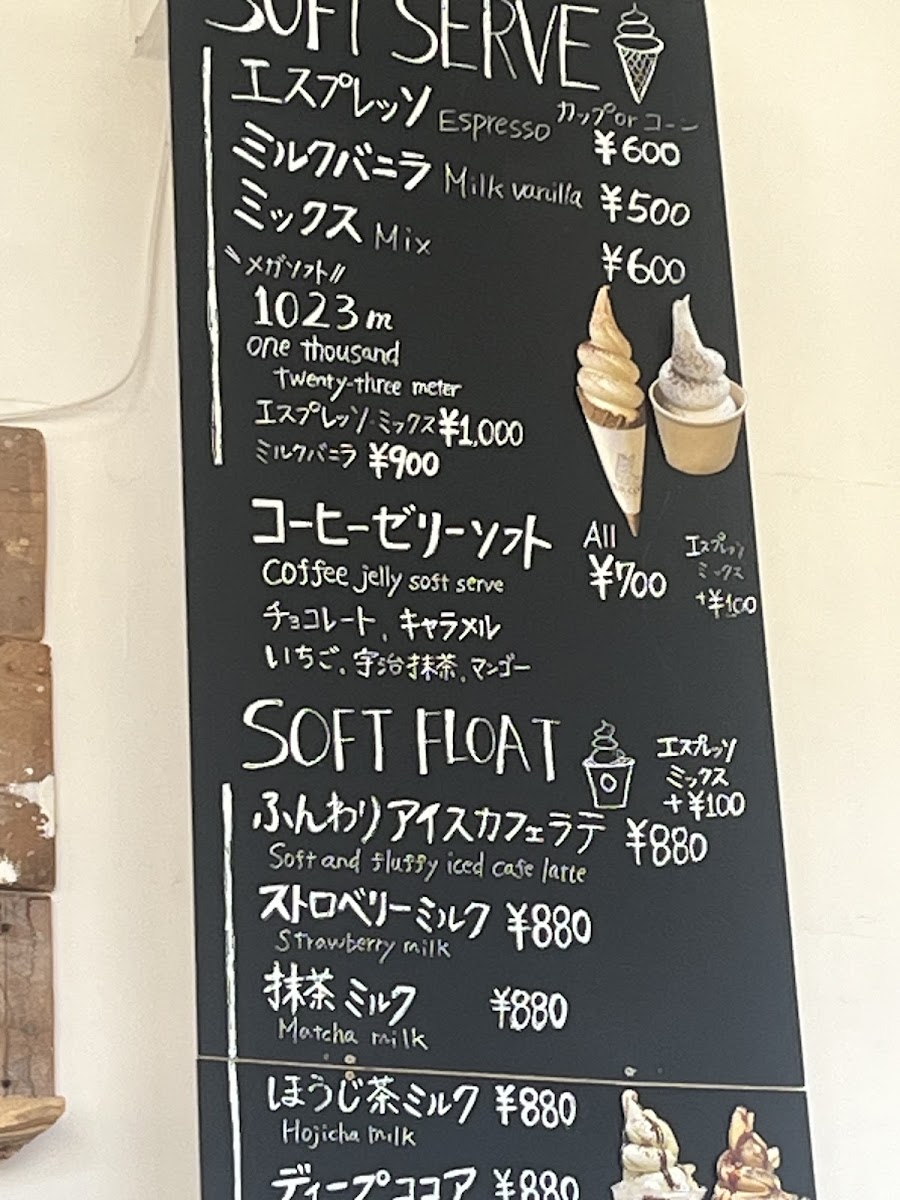 SOFT SERVE
エスプレッソ Espresso カップ or コーン ¥600
ミルクバニラ Milk vanilla ¥500
ミックス Mix ¥600
\\メガソフト//
1023m
one thousand
twenty-three meter
エスプレッソ・ミックス ¥1,000
ミルクバニラ ¥900
コーヒーゼリーソフト All ¥700
エスプレッソ
ミックス
+¥100
Coffee jelly soft serve
チョコレート、キャラメル
いちご、宇治抹茶、マンゴー
SOFT FLOAT
エスプレッソ
ミックス
+¥100
ふんわりアイスカフェラテ ¥880
Soft and fluffy iced cafe latte
ストロベリーミルク ¥880
Strawberry milk
抹茶ミルク ¥880
Matcha milk
ほうじ茶ミルク ¥880
Hojicha milk
ディープココア ¥880